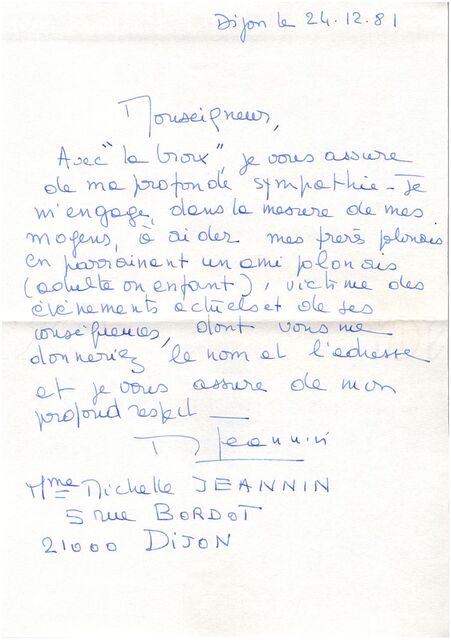 Dijon le 24.12.81
Monseigneur,
Avec "la Croix", je vous assure
de ma profonde sympathie - Je
m'engage, dans la mesure de mes
moyens, à aider mes frères polonais
en parrainant un ami polonais
(adulte ou enfant), victime des
évènements actuels et de ses
conséquences, dont vous me
donneriez le nom et l'adresse
et je vous assure de mon
profond respect —
M Jeannin
Mme Michelle JEANNIN
5 rue BORDOT
21000 DIJON